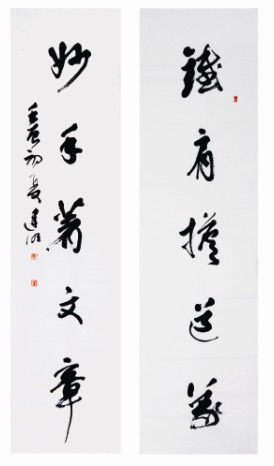 鐵肩擔道義
妙手著文章
壬辰初夏